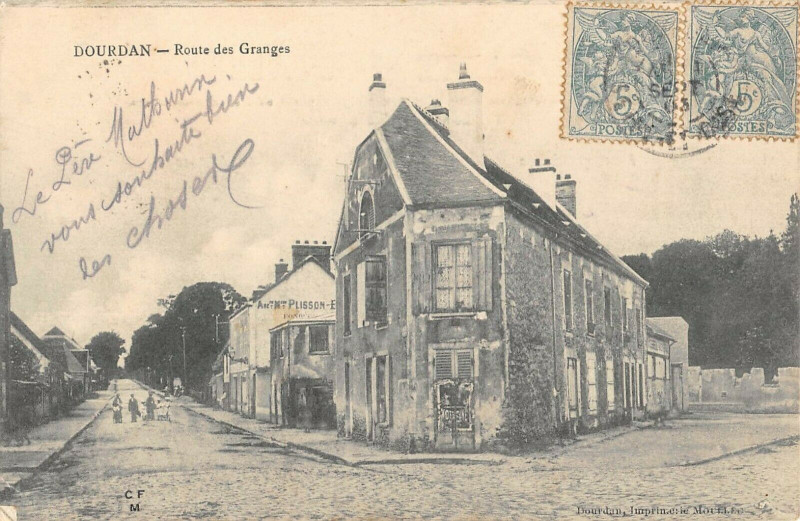 DOURDAN — Route des Granges
Le Père Mathurin
vous souhaite bien
des choses
5c 5c
POSTES POSTES
SEPT
PLISSON-
C F
M
Dourdan, Imprimerie